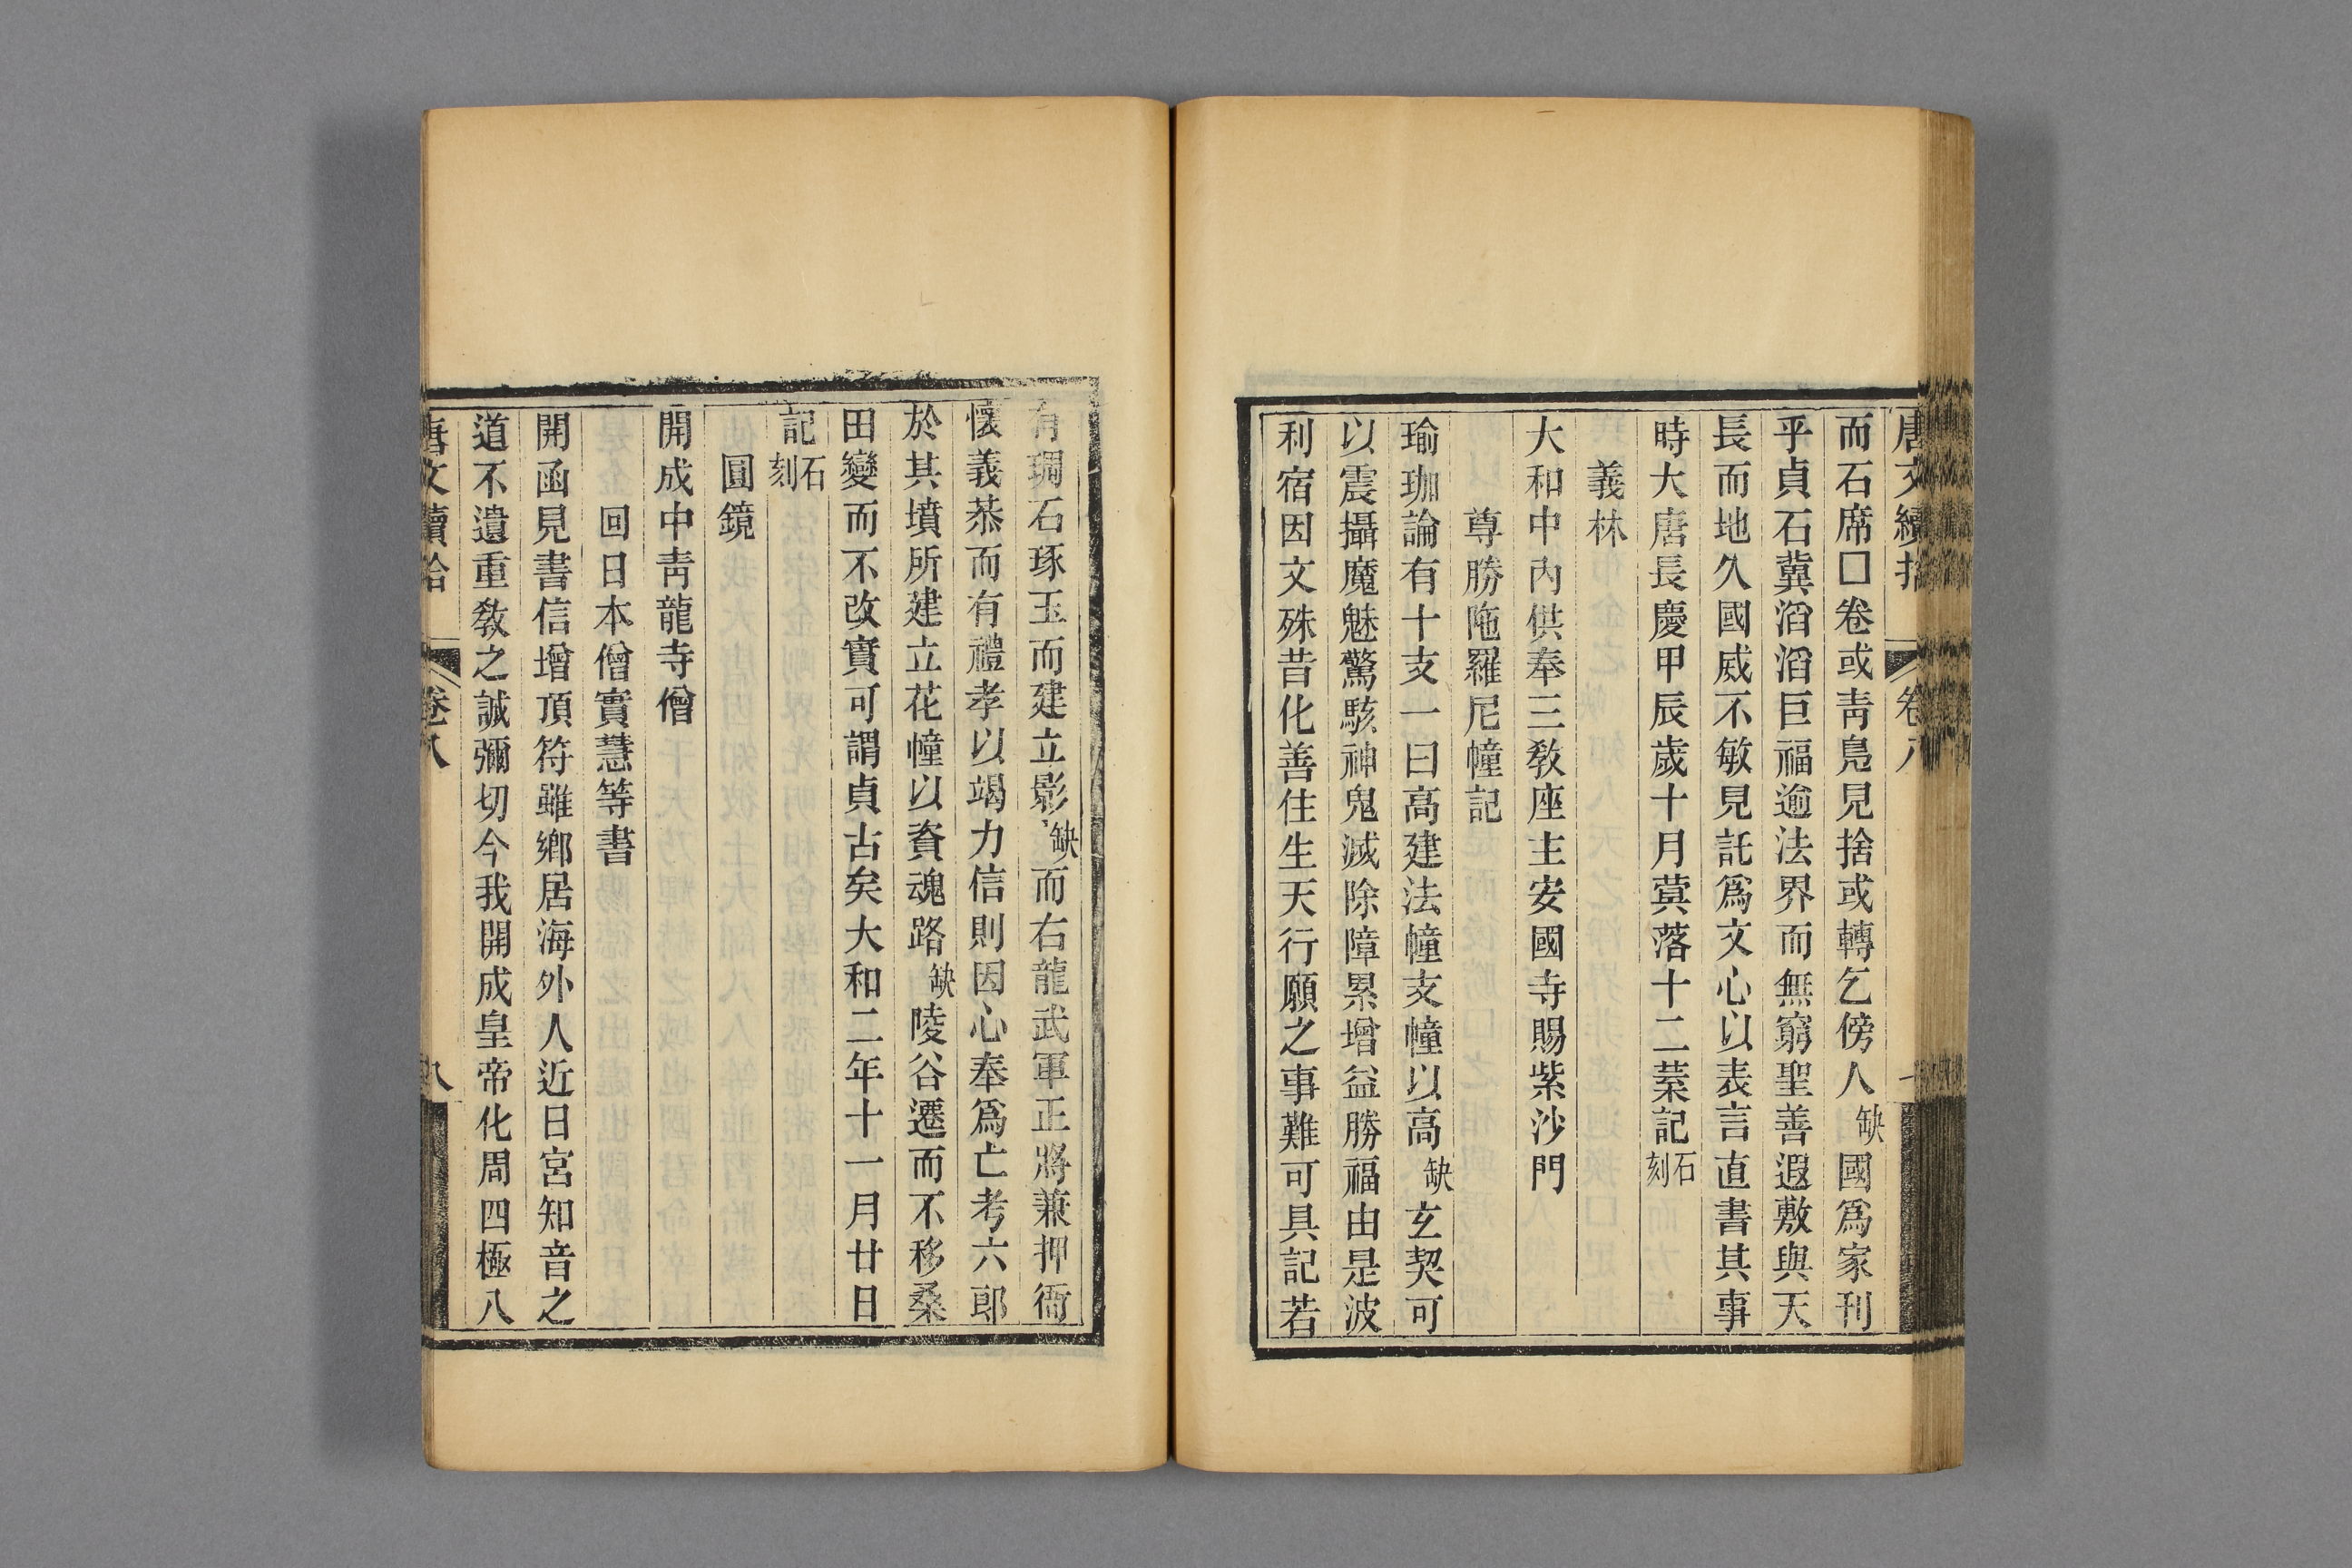 而石席□卷或靑鳧見捨或轉乞傍人缺國爲家刊
乎貞石冀滔滔巨福逾法界而無窮聖善遐敷與天
長而地久國威不敏見託爲文心以表言直書其事
時大唐長慶甲辰歲十月蓂落十二葉記石刻
義林
大和中內供奉三敎座主安國寺賜紫沙門
尊勝陁羅尼幢記
瑜珈論有十支一曰高建法幢支幢以高缺玄契可
以震攝魔魅驚駭神鬼滅除障累增益勝福由是波
利宿因文殊昔化善住生天行願之事難可具記若
有琱石琢玉而建立影缺而右龍武軍正將兼押衙
懷義恭而有禮孝以竭力信則因心奉爲亡考六郎
於其墳所建立花幢以資魂路缺陵谷遷而不移桑
田變而不改實可謂貞古矣大和二年十一月廿日
記石刻
圓鏡
開成中靑龍寺僧
回日本僧實慧等書
開函見書信增頂符雖鄉居海外人近日宮知音之
道不遺重敎之誠彌切今我開成皇帝化周四極八
唐文續拾
卷八
八